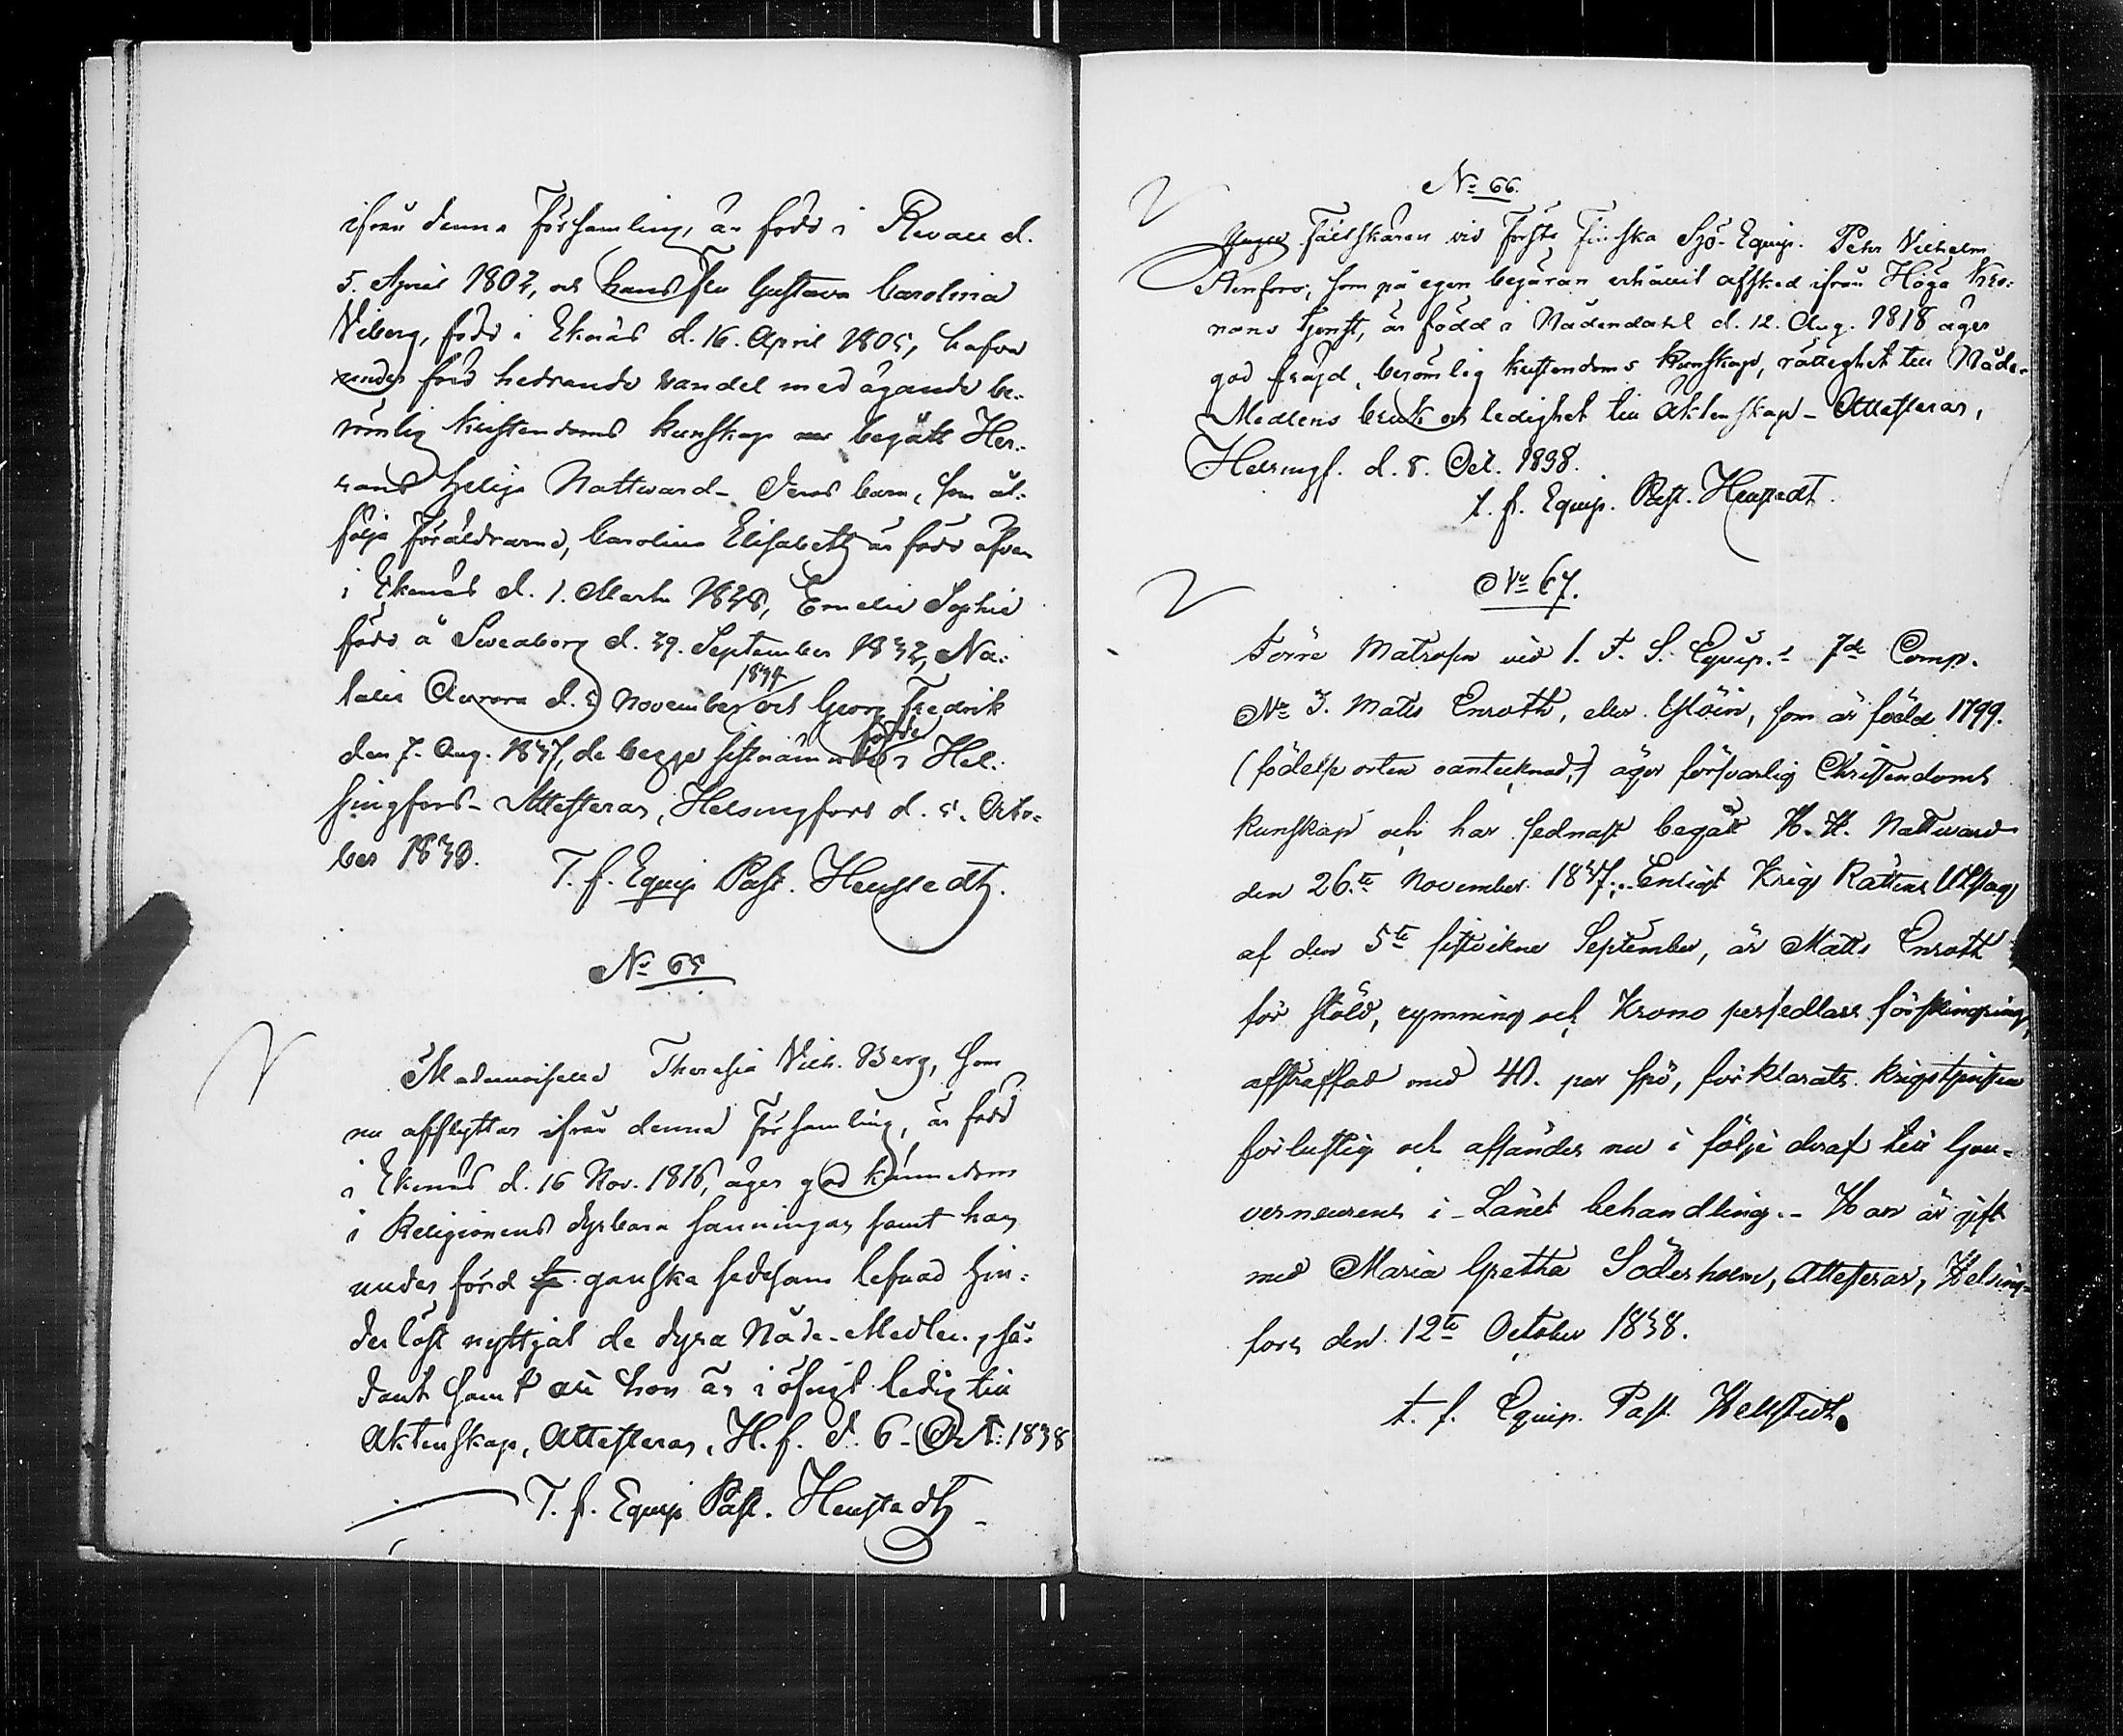 ifrån denna Församling, är född i Reval d.
5. April 1802, och hans Fru Gustava Carolina
Viberg, född i Ekenäs d. 16. April 1805, hafva
under förd hedrande vandel med ägande be-
römlig kristendoms kunskap begått Her-
rans helige Nattward_ Deras barn, som åt-
följa Föräldrarne, Carolina Elisabeth är född äfven
i Ekenäs d. 1. Martii 1828, Emelie Sophie
född å Sweaborg d. 29. September 1832, Na-
talia Aurora d. 5 November 1834 och Georg Fredrik
den 7. Aug. 1837, de begge sistnämnde födde i Hel-
singfors_ Attesteras, Helsingfors d. 5. Octo-
ber 1838.
T. f. Equip Past. Hellstedt.
No 65
Mademoiselle Theresia Vilh. Berg, som
nu afflyttar ifrån denna Församling, är född
i Ekenäs d. 16 Nov. 1816, äger god kännedom
i Religionens dyrbara sanningar samt har
under förd ganska sedesam lefnad hin-
derlöst nyttjat de dyra Nåde-Medlen, så-
dant samt att hon är i öfrigt ledig till
Äktenskap, Attesteras, H.f. d. 6 Oct: 1838
T. f. Equip Past. Hellstedt
No 66.
Yngre Fältskären vid Första Finska Sjö-Equip. Petter Vilhelm
Stenfors, som på egen begäran erhållit afsked ifrån Höga Kro-
nans tjenst, är född i Nådendahl d. 12. Aug. 1818 äger
god frägd, berömlig kristendoms kunskap, rättighet till Nåde-
Medlens bruk och ledighet till Äktenskap_ Attesteras,
Helsingf. d. 8. Oct. 1838.
t. f. Equip. Past. Hellstedt.
No 67.
Förre Matrosen vid 1. F. S. Equip.s 7de Comp.
No 3. Matts Enroth, eller, som är född 1799.
(födelse orten oantecknad,) äger försvarlig Christendoms
kunskap och har sednast begått H. H. Nattward
den 26te November 1837. Enligt Krigs Rättens Utslag
af den 5te sistvikne September, är Matts Enroth
för stöld, rymning och Krono persedlars förskingring,
affstraffad med 40. par spö, förklarats krigstjensten
förlustig och afsändes nu i följe deraf till Gou-
verneurens i Länet behandling._ Han är gift
med Maria Gretha Söderholm, Attesteras, Helsing-
fors den 12te October 1838.
t. f. Equip. Past. Hellstedt.